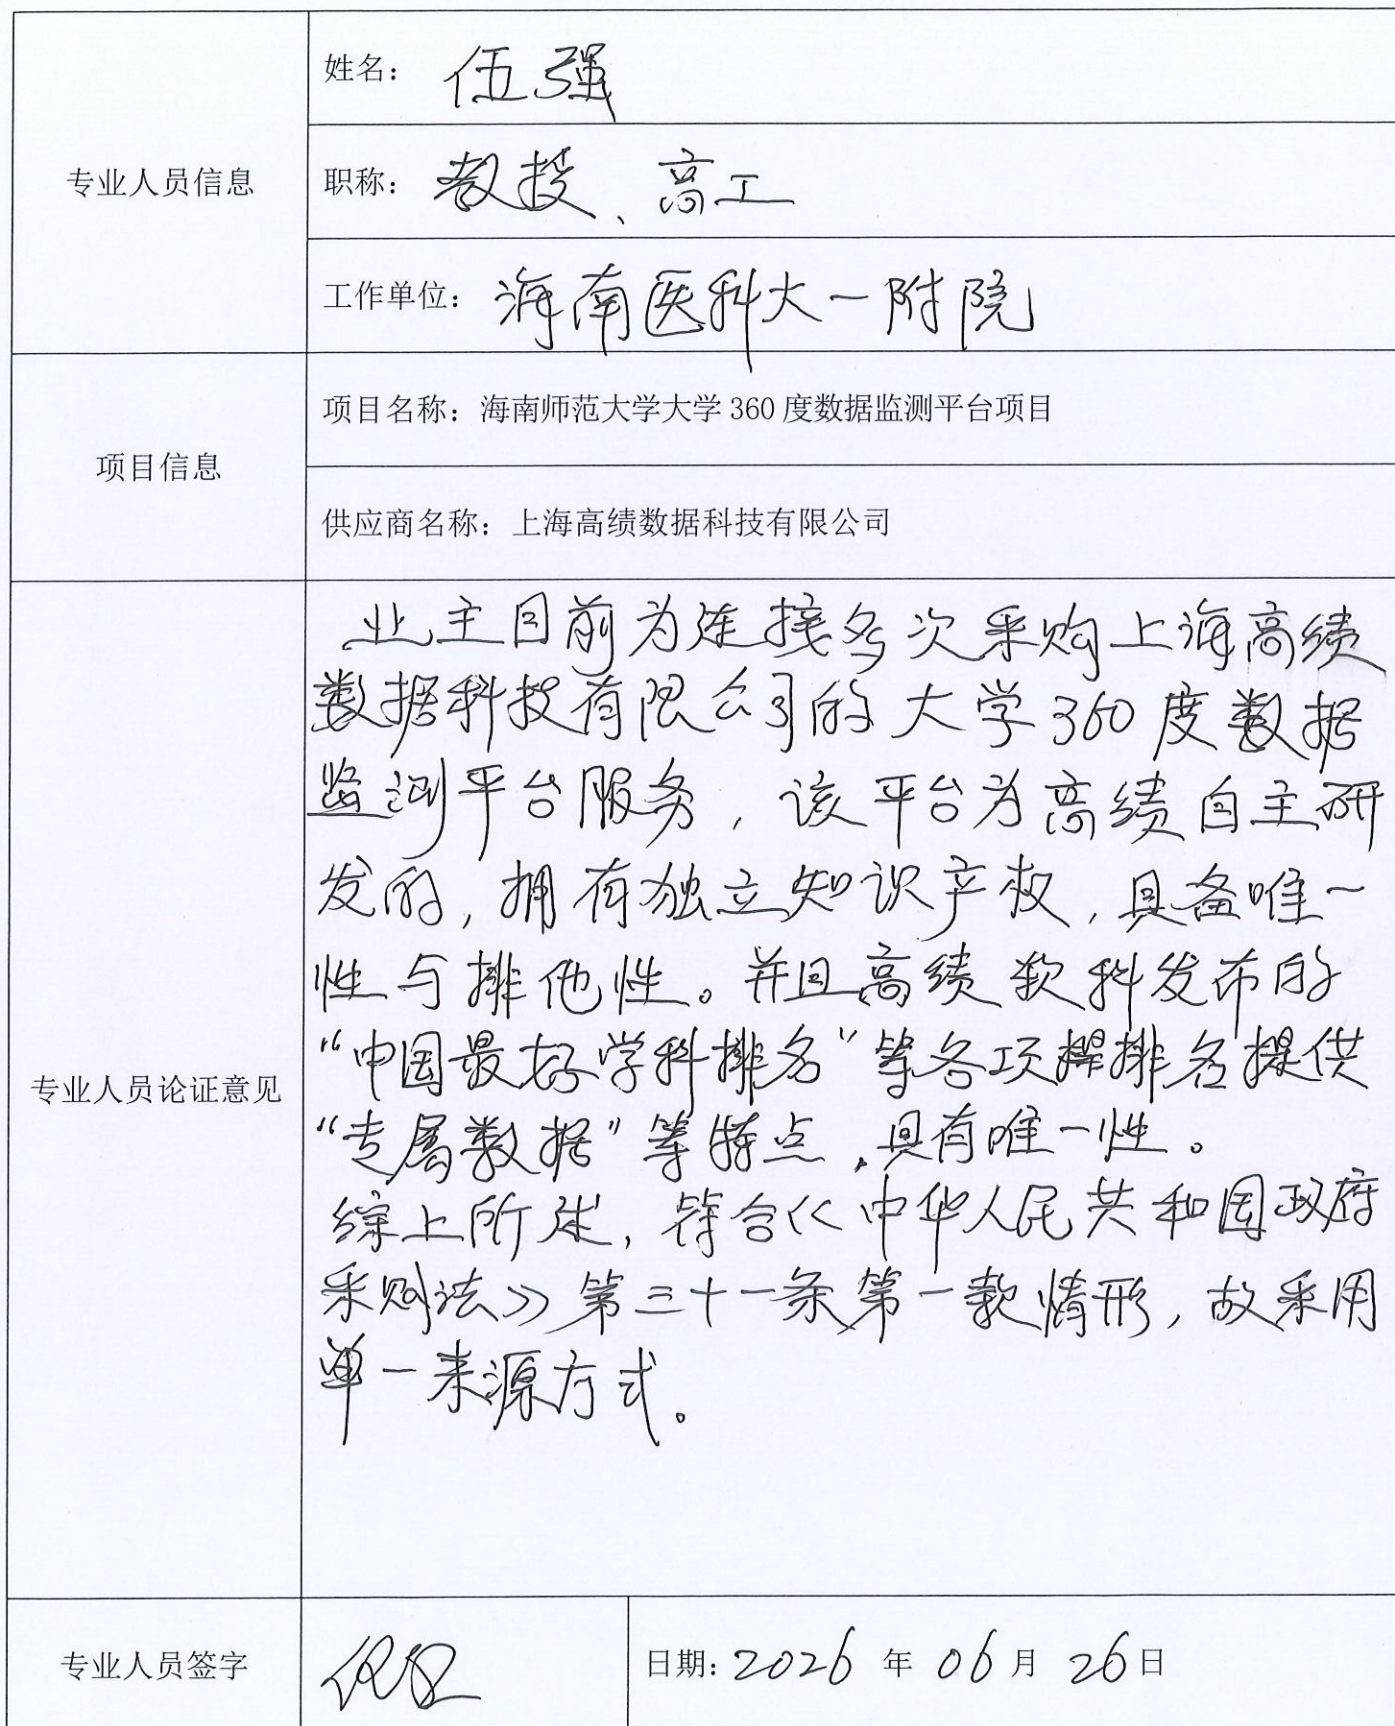 专业人员信息
姓名：伍强
职称：教授、高工
工作单位：海南医科大一附院
项目信息
项目名称：海南师范大学大学360度数据监测平台项目
供应商名称：上海高绩数据科技有限公司
专业人员论证意见
业主目前为连接多次采购上海高绩
数据科技有限公司的大学360度数据
监测平台服务，该平台为高绩自主研
发的，拥有独立知识产权，具备唯一
性与排他性。并且高绩软科发布的
“中国最好学科排名”等各项排名提供
“专属数据”等特点，具有唯一性。
综上所述，符合《中华人民共和国政府
采购法》第三十一条第一款情形，故采用
单一来源方式。
专业人员签字
日期：2026年06月26日